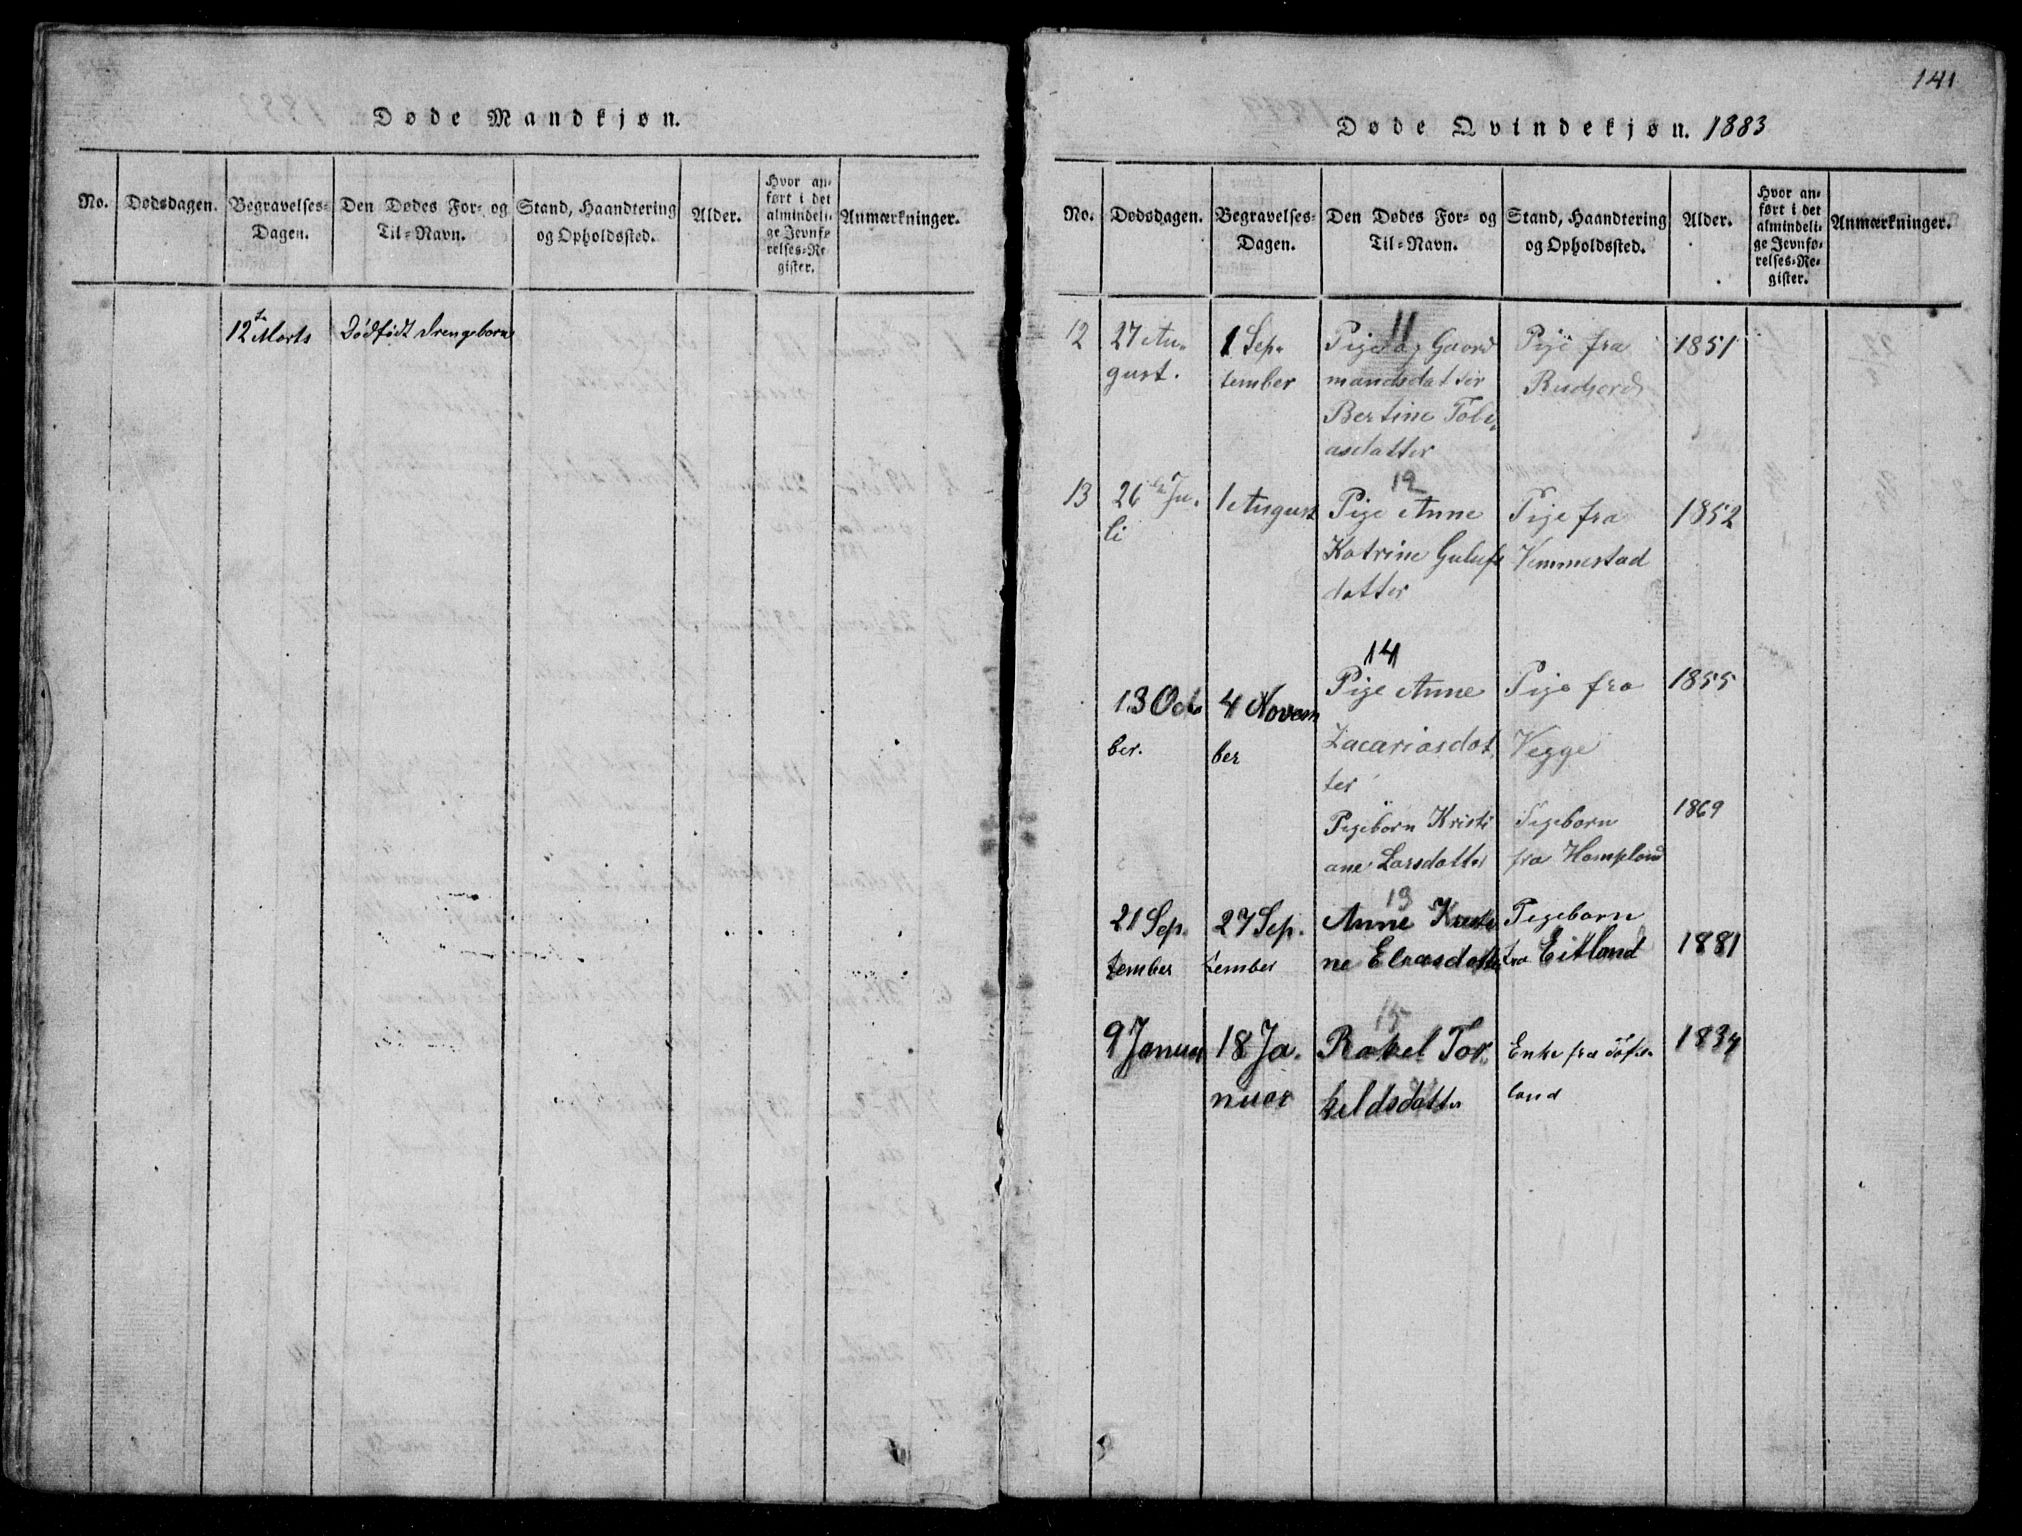 Døde Mandkjøn.
No.
Dødsdagen.
Begravelses-
Dagen.
Den Dødes For- og
Til-Navn.
Stand, Haandtering
og Opholdssted.
Alder.
Hvor an-
ført i det
almindeli-
ge Jevnfø-
relses-Re-
gister.
Anmærkninger.
12te Marts
Dødfødt Drengebarn
141
Døde Qvindekjøn. 1883
No.
Dødsdagen.
Begravelses-
Dagen.
Den Dødes For- og
Til-Navn.
Stand, Haandtering
og Opholdssted.
Alder.
Hvor an-
ført i det
almindeli-
ge Jevnfø-
relses-Re-
gister.
Anmærkninger.
12
27 Au-
gust.
1 Sep-
tember
11
Pige og Gaard
mandsdatter
Bertine Tobi
asdatter
Pije fra
Rudjord
1851
13
26de Ju-
li
1 August
12
Pige Anne
Katrine Gulufs
datter
Pije fra
Vemmestad
1852
13 Octo
ber.
4 Novem
ber
14
Pige Anne
Zacariasdat
ter
Pige fra
Vegge
1855
Pigebarn Kristi
ane Larsdatter
Pigebarn
fra Hompland
1869
21 Sep.
tember
27 Sep.
tember
13
Anne Kristi
ne Eliasdatter
Pigebarn
fra Eitland
1881
9 Januar
18 Ja.
nuar
15
Rakel Tor
keldsdatter
Enke fra
land
1834